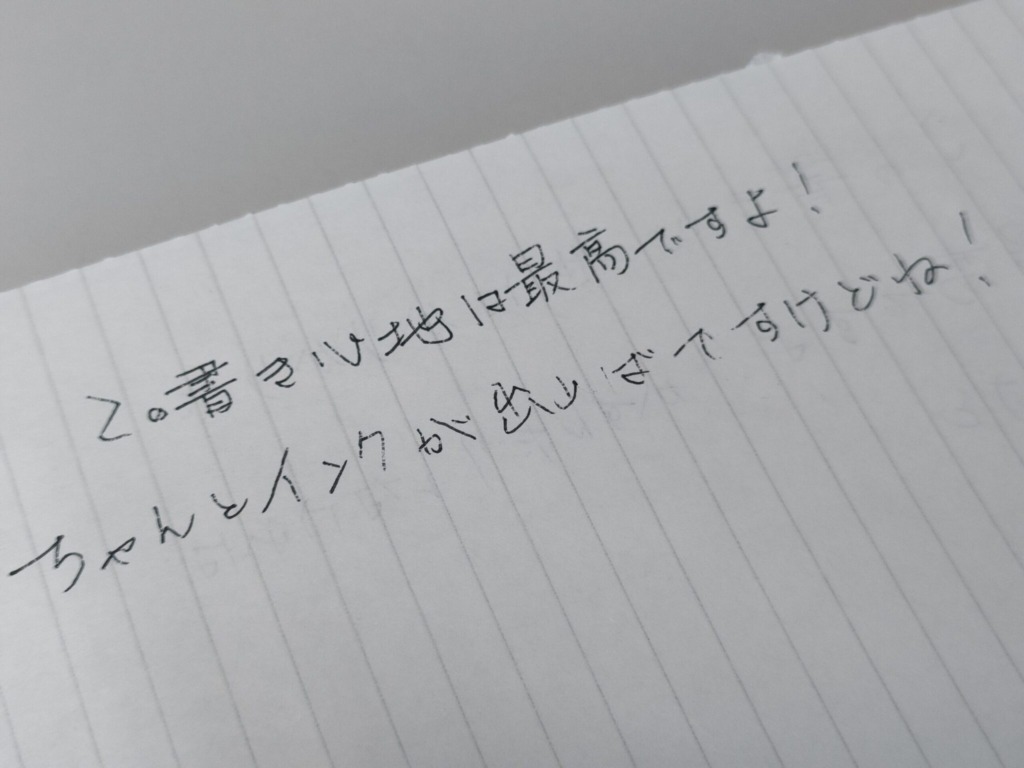 この書き心地は最高ですよ!
ちゃんとインクが出ればですけどね!